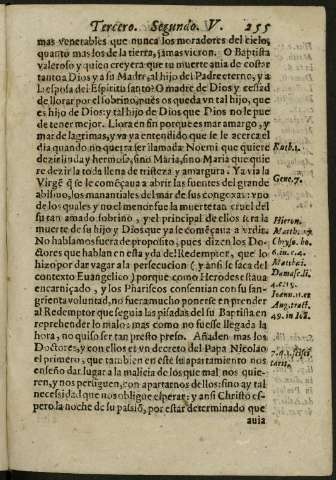 Tercero. Segundo. V. 255
mas venerables que nunca los moradores del cielo,
quanto mas los de la tierra, jamas vieron. O Baptista
valeroso y quien creyera que tu muerte auia de costar
tanto a Dios y a su Madre, al hijo del Padre eterno, y a
la esposa del Espiritu sancto? O madre de Dios y cessad
de llorar por el sobrino, pues os queda vn tal hijo, que
es hijo de Dios: y tal hijo de Dios que Dios no le pue
de tener mejor. Llora en fin porque es mar amargo, y
mar de lagrimas, y va ya entendido que se le acerca el
dia quando no querra ser llamada Noemi que quiere
dezir linda y hermosa, sino Maria, sino Maria que quie
re dezir la toda llena de tristeza y amargura. Ya via la
Virgẽ q̃ se le comẽçaua a abrir las fuentes del grande
abismo, los manantiales del mar de sus congoxas: vno
de los quales y no el menor fue la muerte tan cruel del
su tan amado sobrino, y el principal de ellos sera la
muerte de su hijo y Dios que ya se comẽçaua a vrdir.
No hablamos fuera de proposito, pues dizen los Do-
ctores que hablan en esta yda del Redemptor, que lo
hizo por dar vagar a la persecucion (y ansi se saca del
contexto Euangelico) porque como Herodes estaua
encarniçado, y los Phariseos consentian con su san-
grienta voluntad, no fuera mucho ponerse en prender
al Redemptor que seguia las pisadas del su Baptista en
reprehender lo malo: mas como no fuesse llegada la
hora, no quiso ser tan presto preso. Añaden mas los
Doctores, y con ellos et vn decreto del Papa Nicolao
el primero, que tambien en este su apartamiento nos
enseño dar lugar a la malicia de los que mal nos quie-
ren, y nos persiguen, con apartarnos dellos: sino ay tal
necessidad que nos obligue esperar: y ansi Christo es-
pero la noche de su passiõ, por estar determinado que
auia
Ruth. 1.
Gene. 7.
Hieron.
Matth.
Chryso. ho.
Matthæi.
Damasc. li.
4. c. 15.
Ioann. 11. et
Aug. tract.
49. in Ioã.
7. q. 1.